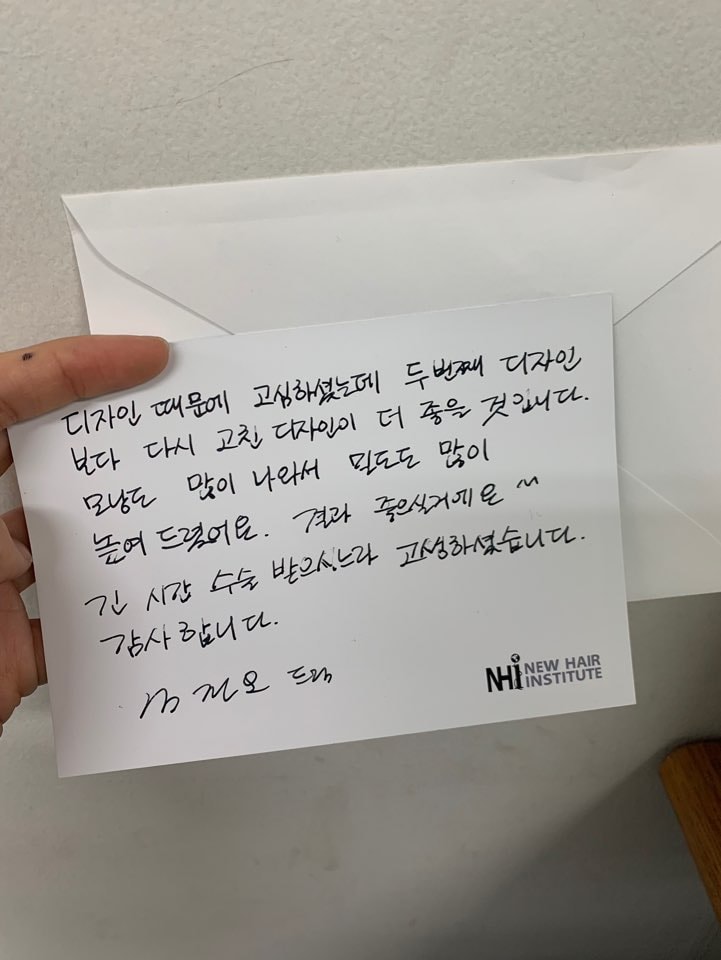 디자인 때문에 고심하셨는데 두번째 디자인
보다 다시 고친 디자인이 더 좋을 것입니다.
모낭도 많이 나와서 밀도도 많이
높여 드렸어요. 결과 좋으실거에요 ~
긴 시간 수술 받으시느라 고생하셨습니다.
감사합니다.
드림
NHI NEW HAIR
INSTITUTE